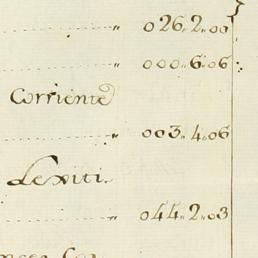 026.. 2.. 00
000.. 6.. 06
Corriente
003.. 4.. 06
Lexiti.
044.. 2.. 03